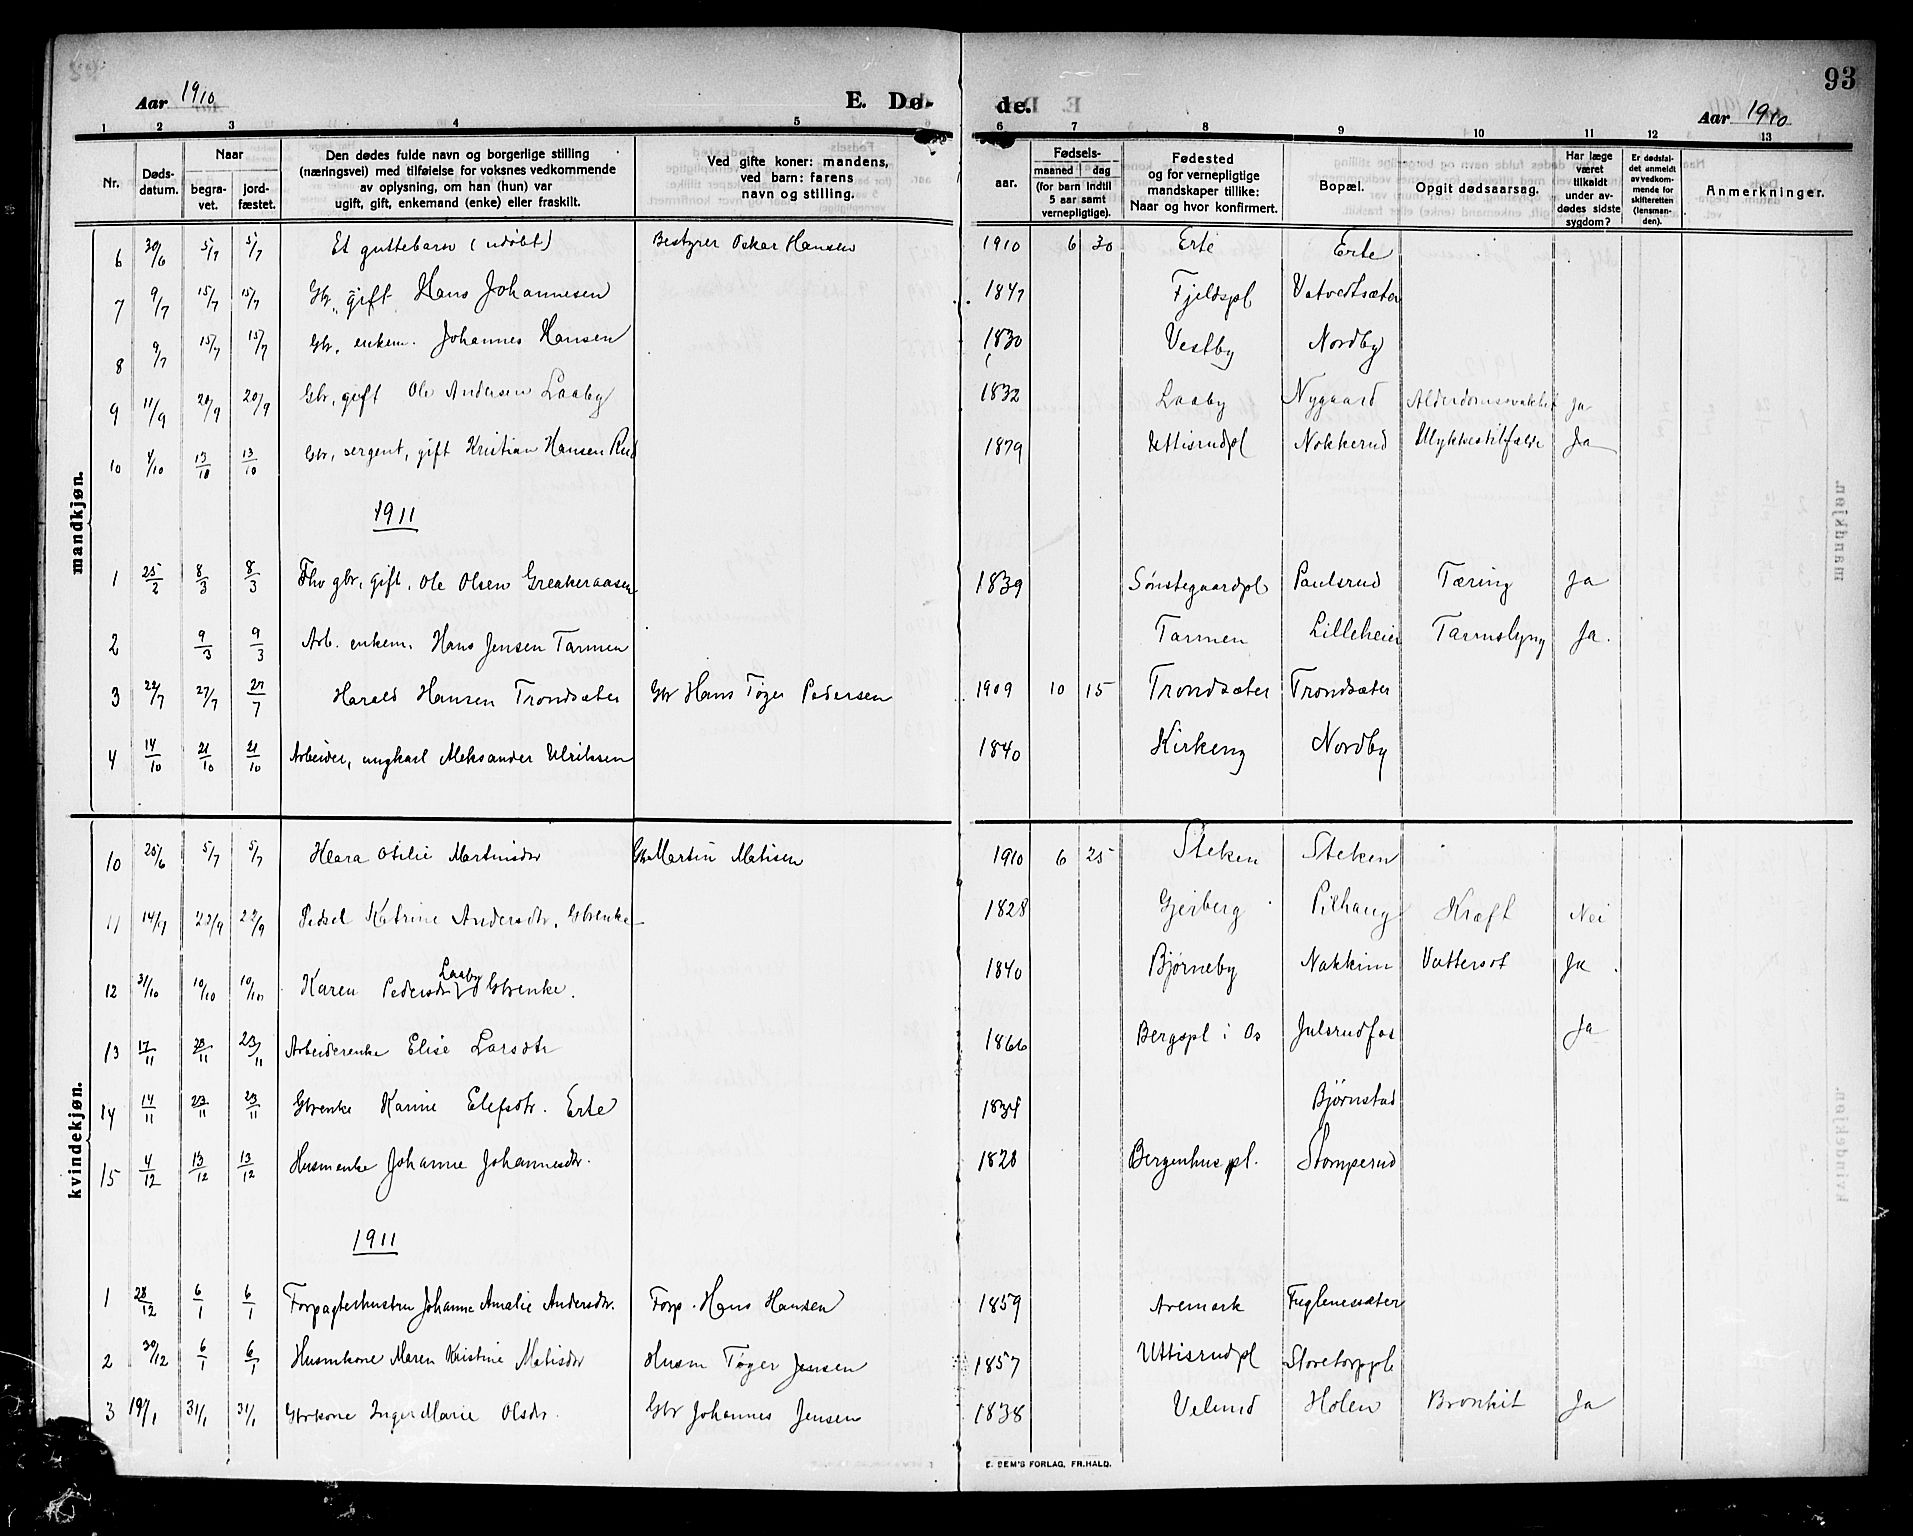 93
Aar 1910
E. Dø-
de.
Aar 1910
1 2 3 4 5 6 7 8 9 10 11 12 13
Nr.
Døds-datum.
Naar
begra-vet.
jord-fæstet.
Den dødes fulde navn og borgerlige stilling
(næringsvei) med tilføielse for voksnes vedkommende
av oplysning, om han (hun) var
ugift, gift, enkemand (enke) eller fraskilt.
Ved gifte koner: mandens,
ved barn: farens
navn og stilling.
Fødsels-
aar.
maaned dag
(for barn indtil
5 aar samt
vernepligtige).
Fødested
og for vernepligtige
mandskaper tillike:
Naar og hvor konfirmert.
Bopæl.
Opgit dødsaarsag.
Har læge
været
tilkaldt
under av-
dødes sidste
sygdom?
Er dødsfal-
det anmeldt
av vedkom-
mende for
skifteretten
(lensman-
den).
Anmerkninger.
mandkjøn.
6 30/6 5/7 5/7 Et guttebarn (udøbt) Bestyrer Oskar Hansen 1910 6 30 Erte Erte
7 9/7 15/7 15/7 Gbr. gift Hans Johannesen 1847 Fjeldspl Vatvedtsæter
8 9/7 15/7 15/7 Gbr. enkem. Johannes Hansen 1830 Vestby Nordby
9 11/9 20/9 20/9 Gbr, gift Ole Andersen Laaby 1832 Laaby Nygaard Alderdomssvakhet Ja
10 4/10 13/10 13/10 Gbr, sergent, gift Kristian Hansen Rud 1879 Uttisrudpl Nokkerud Ulykkestilfælde Ja
1911
1 25/2 8/3 8/3 Fhv gbr, gift, Ole Olsen Greakeraasen 1839 Sønstegaardpl Paulsrud Tæring Ja
2 9/3 9/3 Arb. enkem. Hans Jensen Tarmen Tarmen Lilleheier Tarmslyng Ja.
3 22/7 27/7 27/7 Harald Hansen Trondsæter Gbr Hans Tøger Pedersen 1909 10 15 Trondsæter Trondsæter
4 14/10 21/10 21/10 Arbeider, ungkarl Aleksander Ulriksen 1840 Kirkeng Nordby
kvindekjøn.
10 25/6 5/7 5/7 Klara Otilie Martinsdtr Gbr Martin Matisen 1910 6 25 Steken Steken
11 14/9 22/9 22/9 Katrine Andersdtr. Gbrenke 1828 Gjerberg Pilhaug Kræft Nei
12 31/10 10/10 10/10 Karen Pedersdtr Laaby Gbrenke. 1840 Bjørneby Nakkim Vattersot Ja
13 17/11 23/11 23/11 Arbeiderenke Elise Larsdtr 1866 Bergspl i Os Julsrudfos Ja
14 14/11 23/11 23/11 Gbrenke Karine Elefsdtr. Erte 1834 Bjørnstad
15 4/12 13/12 13/12 Husmenke Johanne Johannesdtr. 1828 Bergenhuspl. Stomperud
1911
1 28/12 6/1 6/1 Forpagterhustru Johanne Amalie Andersdtr. Forp. Hans Hansen 1859 Aremark Fuglenessæter
2 30/12 6/1 6/1 Husmkone Maren Kristine Matisdtr Husm Tøger Jensen 1857 Uttisrudpl Storetorppl
3 19/1 31/1 31/1 Gbrkone Inger Marie Olsdtr. Gbr Johannes Jensen 1838 Velund Holen Bronkit Ja
E. SEM'S FORLAG, FR.HALD.